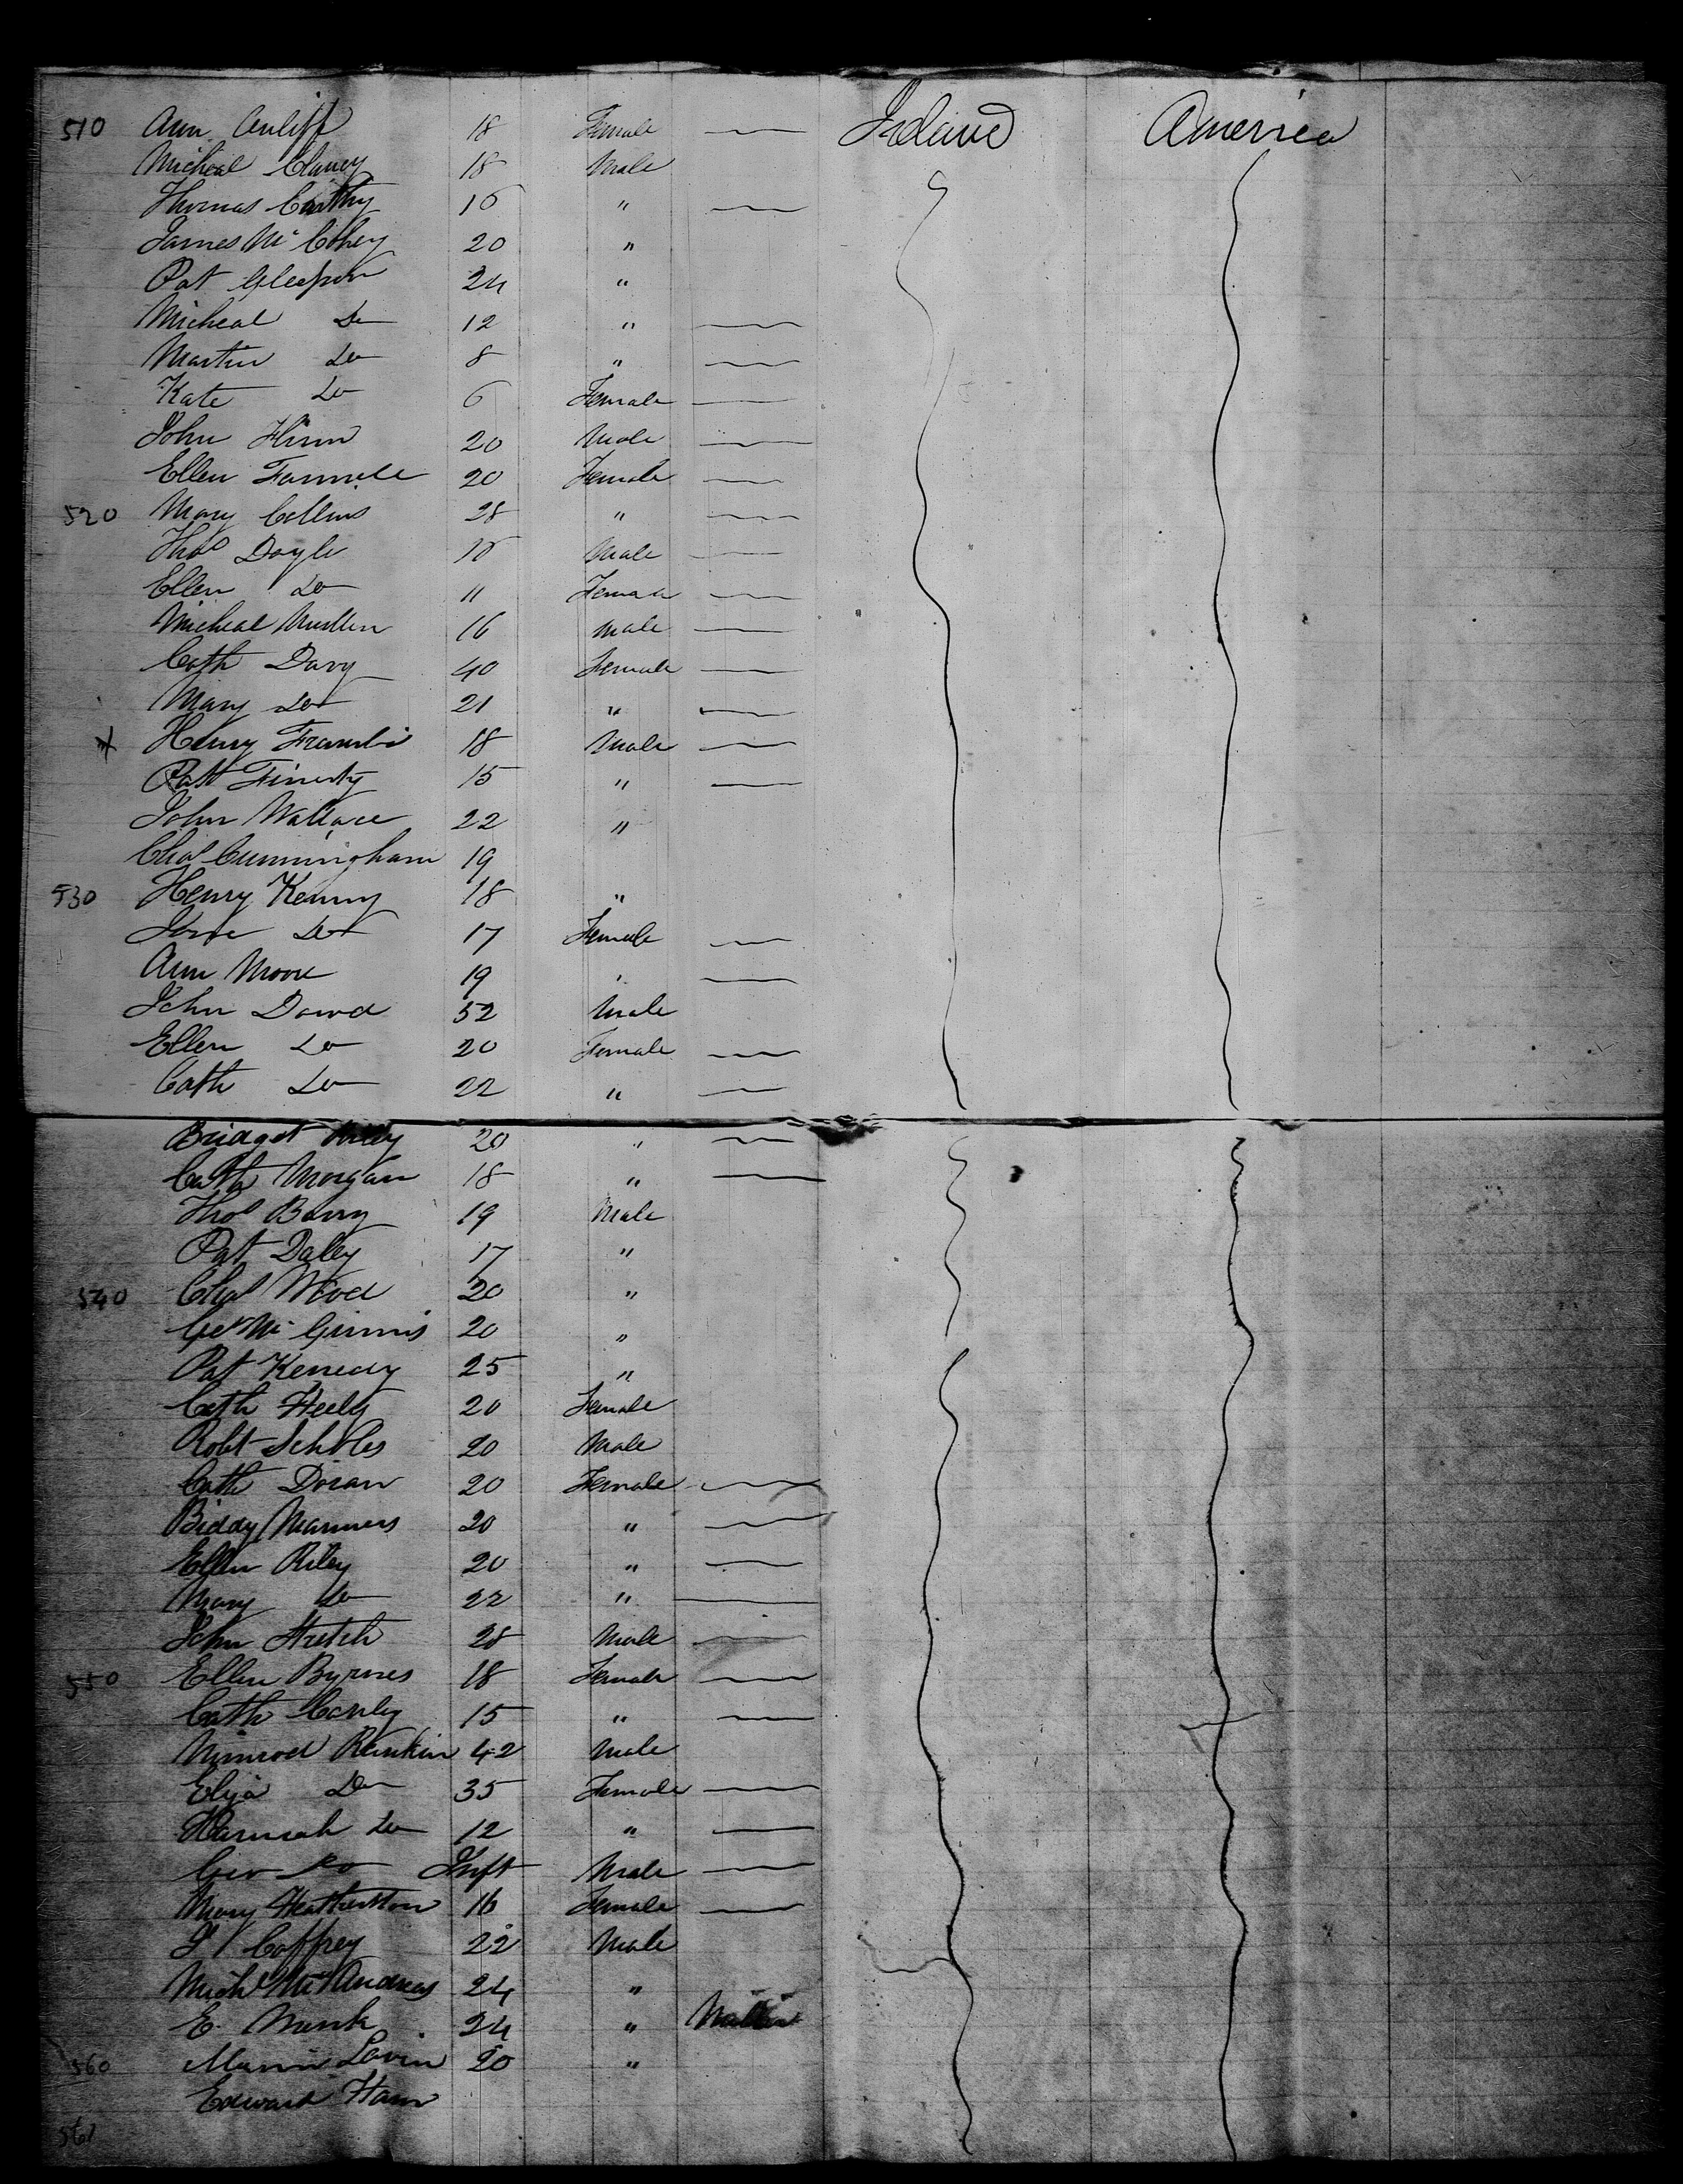 510 Ann Cunliff 18 Female Ireland America
Micheal Clancy 18 Male
Thomas Carthy 16 "
James Mc Cohey 20 "
Pat Gleeson 24 "
Micheal Do 12 "
Martin Do 8 "
Kate Do 6 Female
John Flinn 20 Male
Ellen Farrnell 20 Female
520 Mary Collins 28 "
Thos Doyle 18 Male
Ellen Do 11 Female
Micheal Mullen 16 Male
Cath Davy 40 Female
Mary Do 21 "
x Henry 18 Male
Patt Finerty 15 "
John Wallace 22 "
Chas Cunningham 19
530 Henry Kenny 18 "
Jane Do 17 Female
Ann Moore 19 "
John Dowd 52 Male
Ellen Do 20 Female
Cath Do 22 "
Bridget 20 "
Cath Morgan 18 "
Thos Barry 19 Male
Pat Daley 17 "
540 Chas Wood 20 "
Geo Mc Ginnis 20 "
Pat Kenedy 25 "
Cath Heely 20 Female
Robt Scholes 20 Male
Cath Doran 20 Female
Biddy Manners 20 "
Ellen Riley 20 "
Mary Do 22 "
John Stretch 28 Male
550 Ellen Byrnes 18 Female
Cath Conly 15 "
Nimrod Rankin 42 Male
Eliza Do 35 Female
Hannah Do 12 "
Geo Do Inft Male
Mary Heatherston 16 Female
J Caffrey 22 Male
Michl Mc Andrews 24 "
E. Monk 24 "
560 Lavin 20 "
Edward Ham
561